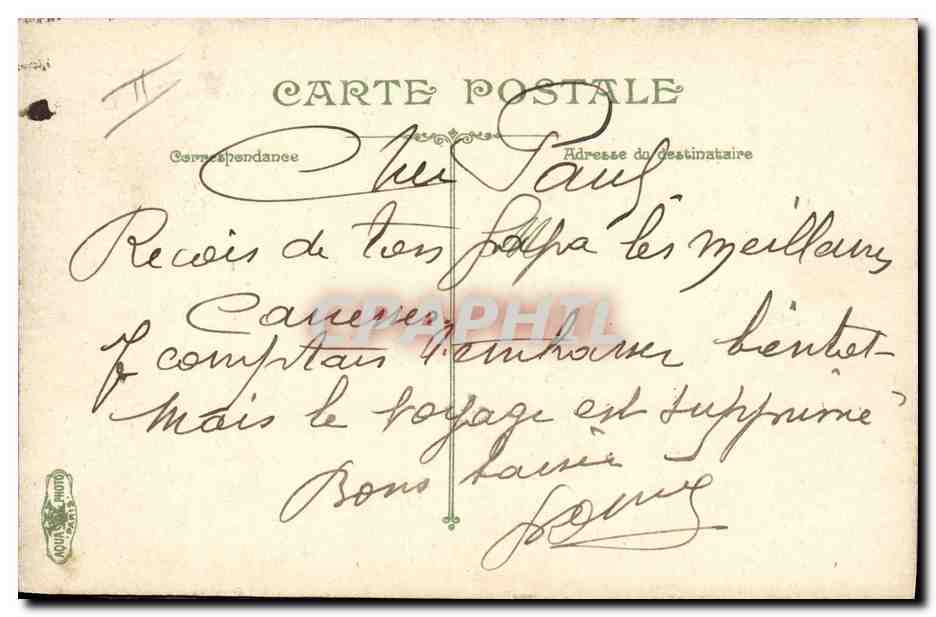 II
CARTE POSTALE
Correspondance
Adresse du destinataire
Cher Paul
Recois de ton papa les meilleures
Caresses
Je comptais t'embrasser bientot
Mais le voyage est supprimé
Bons baisers
CPAPHIL
AQUA PHOTO
PARIS